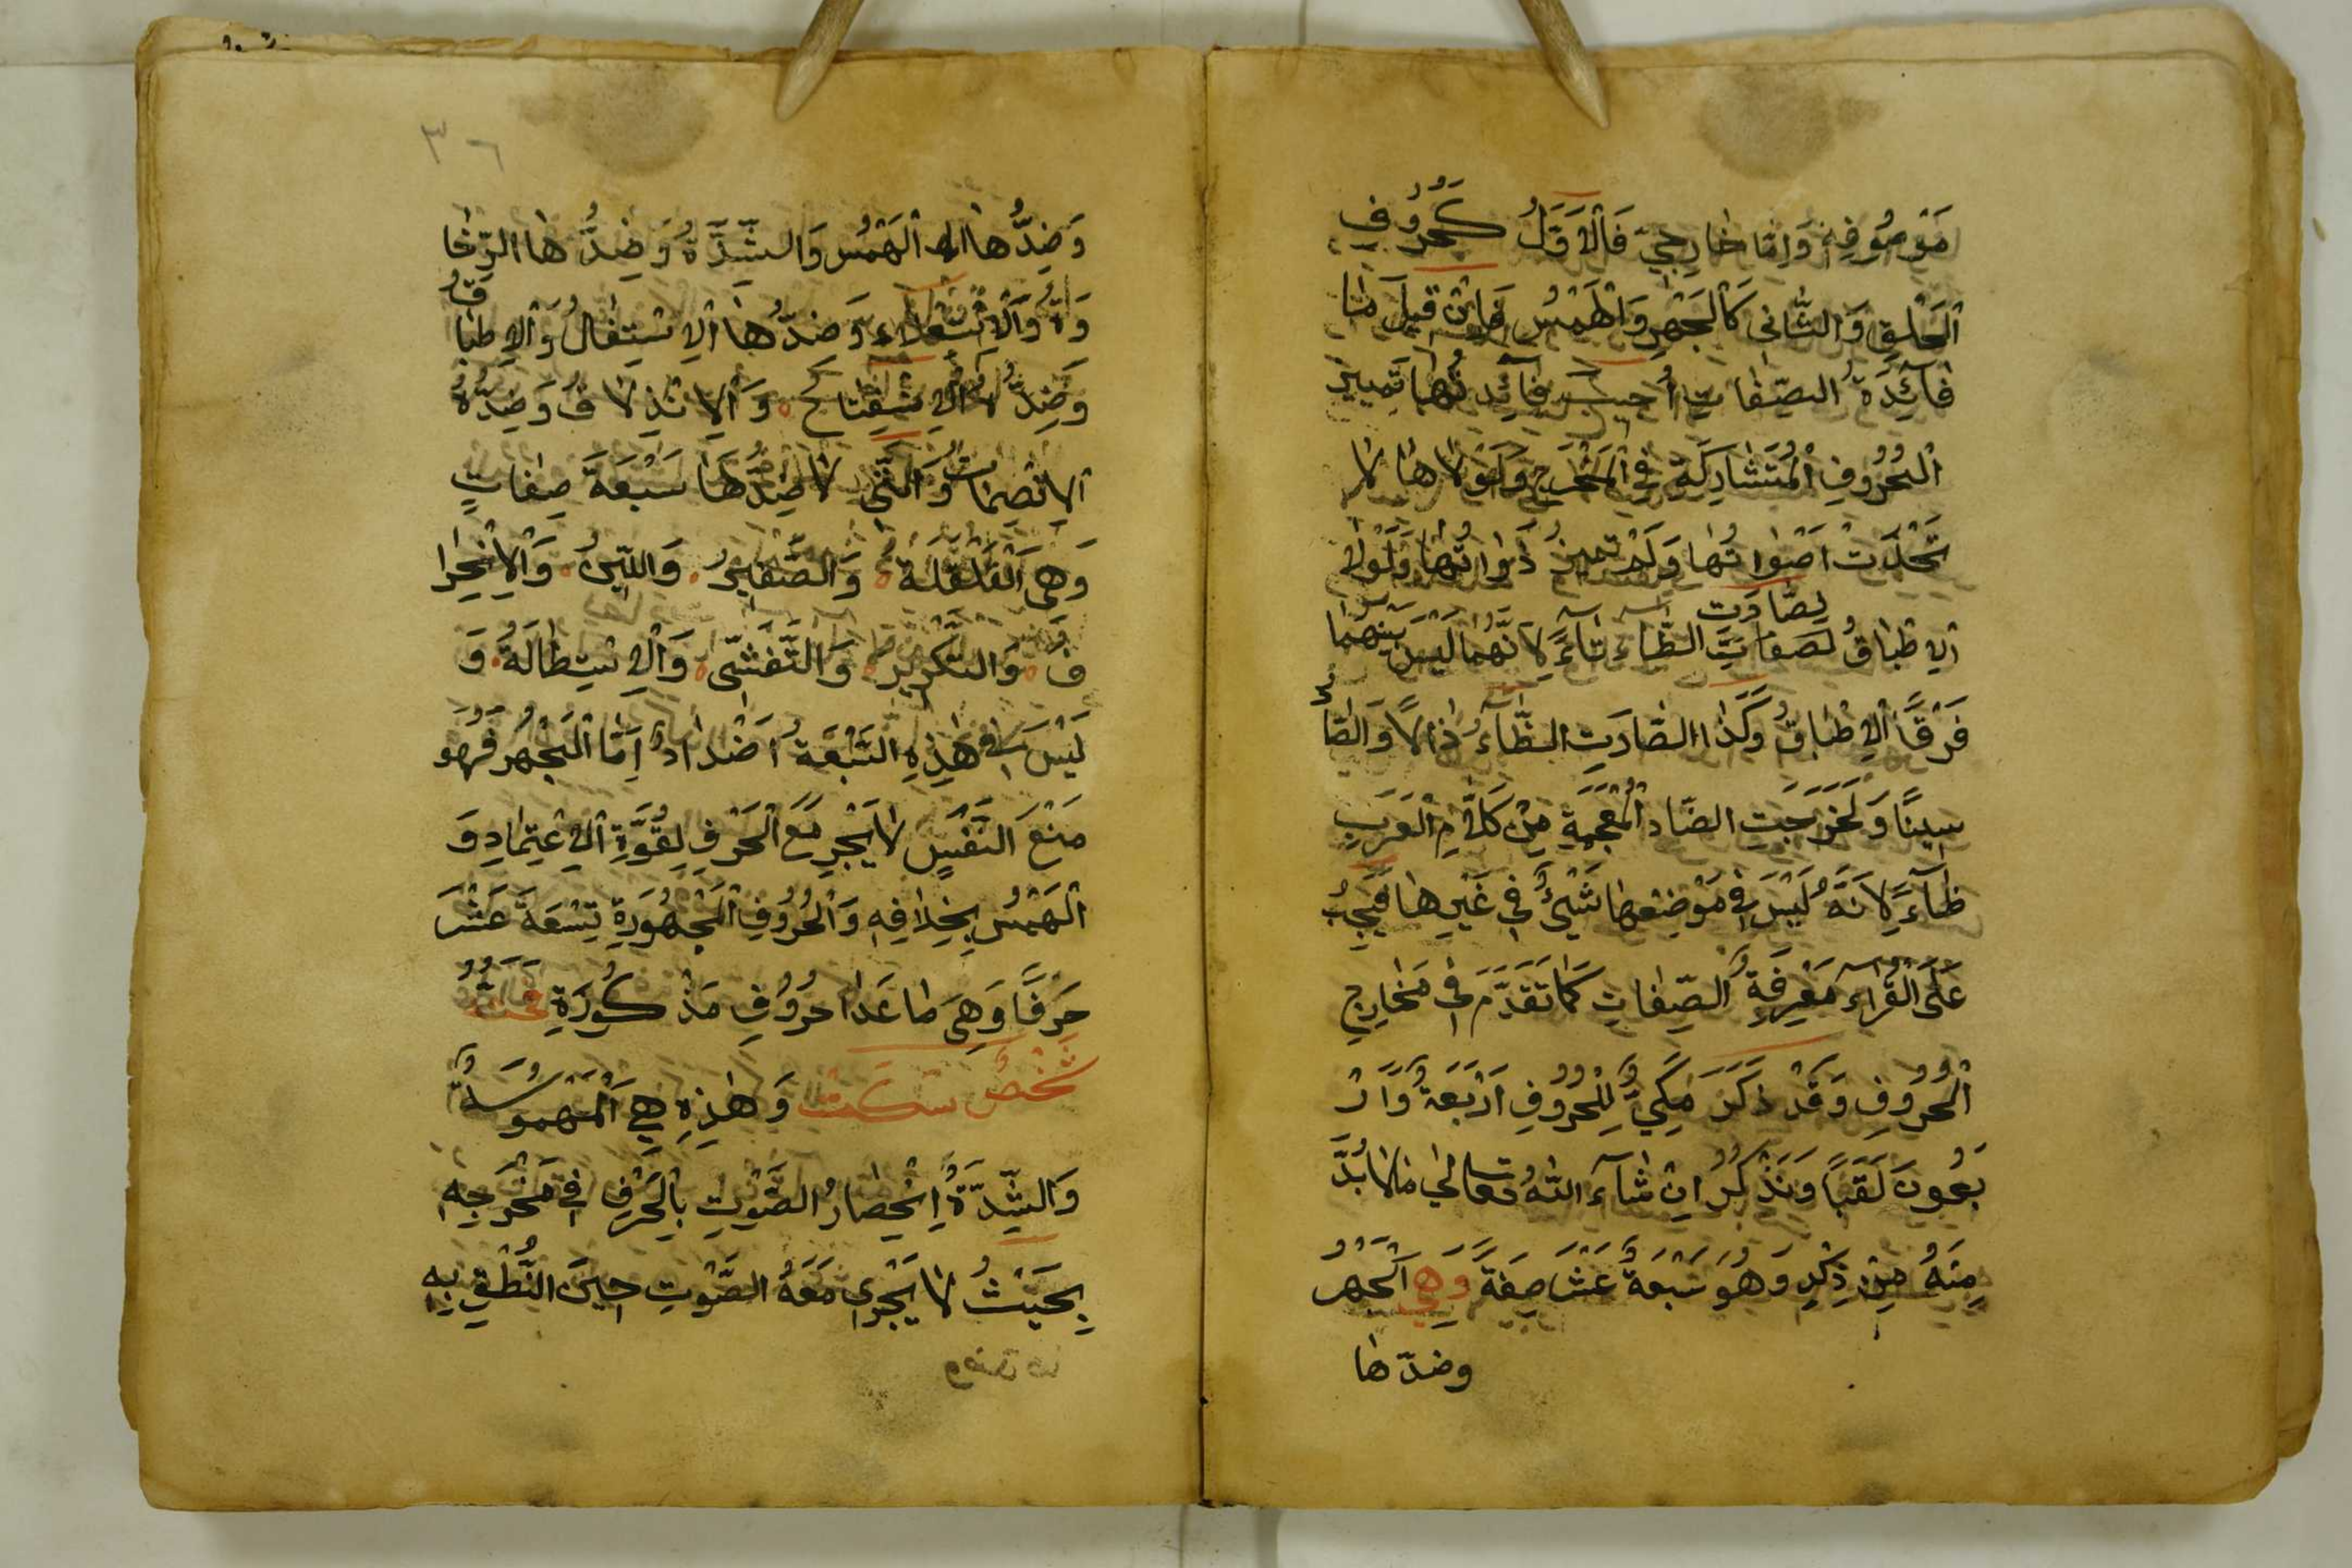 مَوْصُوفِهٖ وَاِمَّا خَارِجِيّ فَالْاَوَّلُ كَحُرُوفِ
الْحَلْقِ وَالثَّانِى كَالْجَهْرِ وَالْهَمْسِ فَاِنْ قِيلَ مَا
فَآئِدَةُ الصِّفَاتِ اُجِيبَ فَآئِدَتُهَا تَمْيِيزُ
الْحُرُوفِ الْمُتَشَارِكَةِ فِي الْمَخْرَجِ وَلَوْلَاهَا لَا
تَّحْدَتْ اَصْوَاتُهَا وَلَمْ تميز ذَوَاتُهَا وَلَوْلَا
لصَّارَت
الْاِطْبَاقُ لصَفَاتِ الطَّاء تَآءً لِاَنَّهُمَا لَيْسَ بَيْنَهُمَا
فَرْقًا اِلَّا الْاِطْبَاقُ وَكَذَا الصَّارَتِ الظَّآءُ ذَالًا وَالصَّادُ
سِينًا وَلَخَرَجَتِ الضَّاد الْمُعْجَمَةِ مِنْ كَلَامِ الْعَرَبِ
ظَآءً لِاَنَّهُ لَيْسَ فِى مَوْضِعِهَا شَيْئٌ فِي غَيْرِهَا فَيَجِبُ
عَلَى الْقُرَّآءِ مَعْرِفَةُ الصِّفَاتِ كَمَا تَقَدَّمَ فِى مَخَارِجِ
الْحُرُوفِ وَقَدْ ذَكَرَ مَكِّيٌّ لِلْحُرُوفِ اَرْبَعَةً وَّاَرْ
بَعُونَ لَقَبًا وَنَذْكُرُ اِنْ شَآءَ اللّٰهُ تعالىٰ مَا لَا بُدَّ
مِنْهُ مِنْ ذِكْرِهِ وَهُوَ سَبْعَةُ عَشَرَ صِفَةً وَهِيَ الْجَهْرُ
وضدّها
٣٦
وَضِدُّهَا الْهَمْسُ وَالشِّدَّةُ وَضِدُّهَا الرِّخَا
وَةُ وَالْاِسْتِعْلَاءِ وَضِدُّهَا الْاِسْتِفَالُ وَالْاِطْبَاقُ
وَضِدُّهُ الْاِنْفِتَاحُ وَالْاِنْذِلَاقُ وَضِدُّهُ
الْاِنْصِمَاتُ وَالَّتِى لَا ضِدَّ لَهَا سَبْعَةُ صِفَاتٍ
وَهِىَ الْقَلْقَلَةُ وَالصَّفِيرُ وَاللِّينُ وَالْاِنْحِرَا
فُ وَالتَّكْرِيرُ وَالتَّفَشِّى وَالْاِسْتِطَالَةُ وَ
لَيْسَ فِى هٰذِهِ السَّبْعَةِ اَضْدَادٌ اَمَّا الْجَهْرُ فَهُوَ
مَنْعَ النَّفْسِ لَا يَجْرِ مَعَ الْحَرْفِ لِقُوَّةِ الْاِعْتِمَادِ وَ
الْهَمْسُ بِخِلَافِهِ وَالْحُرُوفِ الْمَجْهُورَةِ تِسْعَةَ عَشَرَ
حَرْفًا وَهِىَ مَا عَدَا حُرُوفِ مَذْكُورَةِ فَحَثَّهُ
شَخْصٌ سَكَتَ وَهٰذِهِ هِيَ الْمَهْمُوسَةُ
وَالشِّدَّةُ اِنْحِصَارُ الصَّوْتِ بِالْحَرْفِ فِي مَخْرَجِهِ
بِحَيْثُ لَا يَجْرِى مَعَهُ الصَّوْتِ حِينَ النُّطْقِ بِهِ